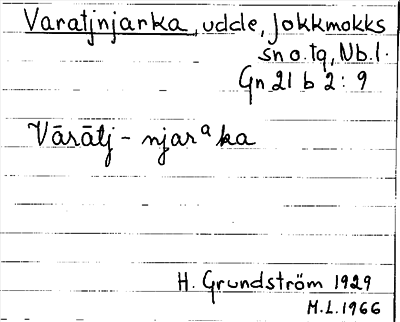 Varatjnjarka, udde, Jokkmokks
sn o. tg, Nb.l.
Gn 21 b 2: 9
Vārātj - njarᵃka
H. Grundström 1929
M.L. 1966